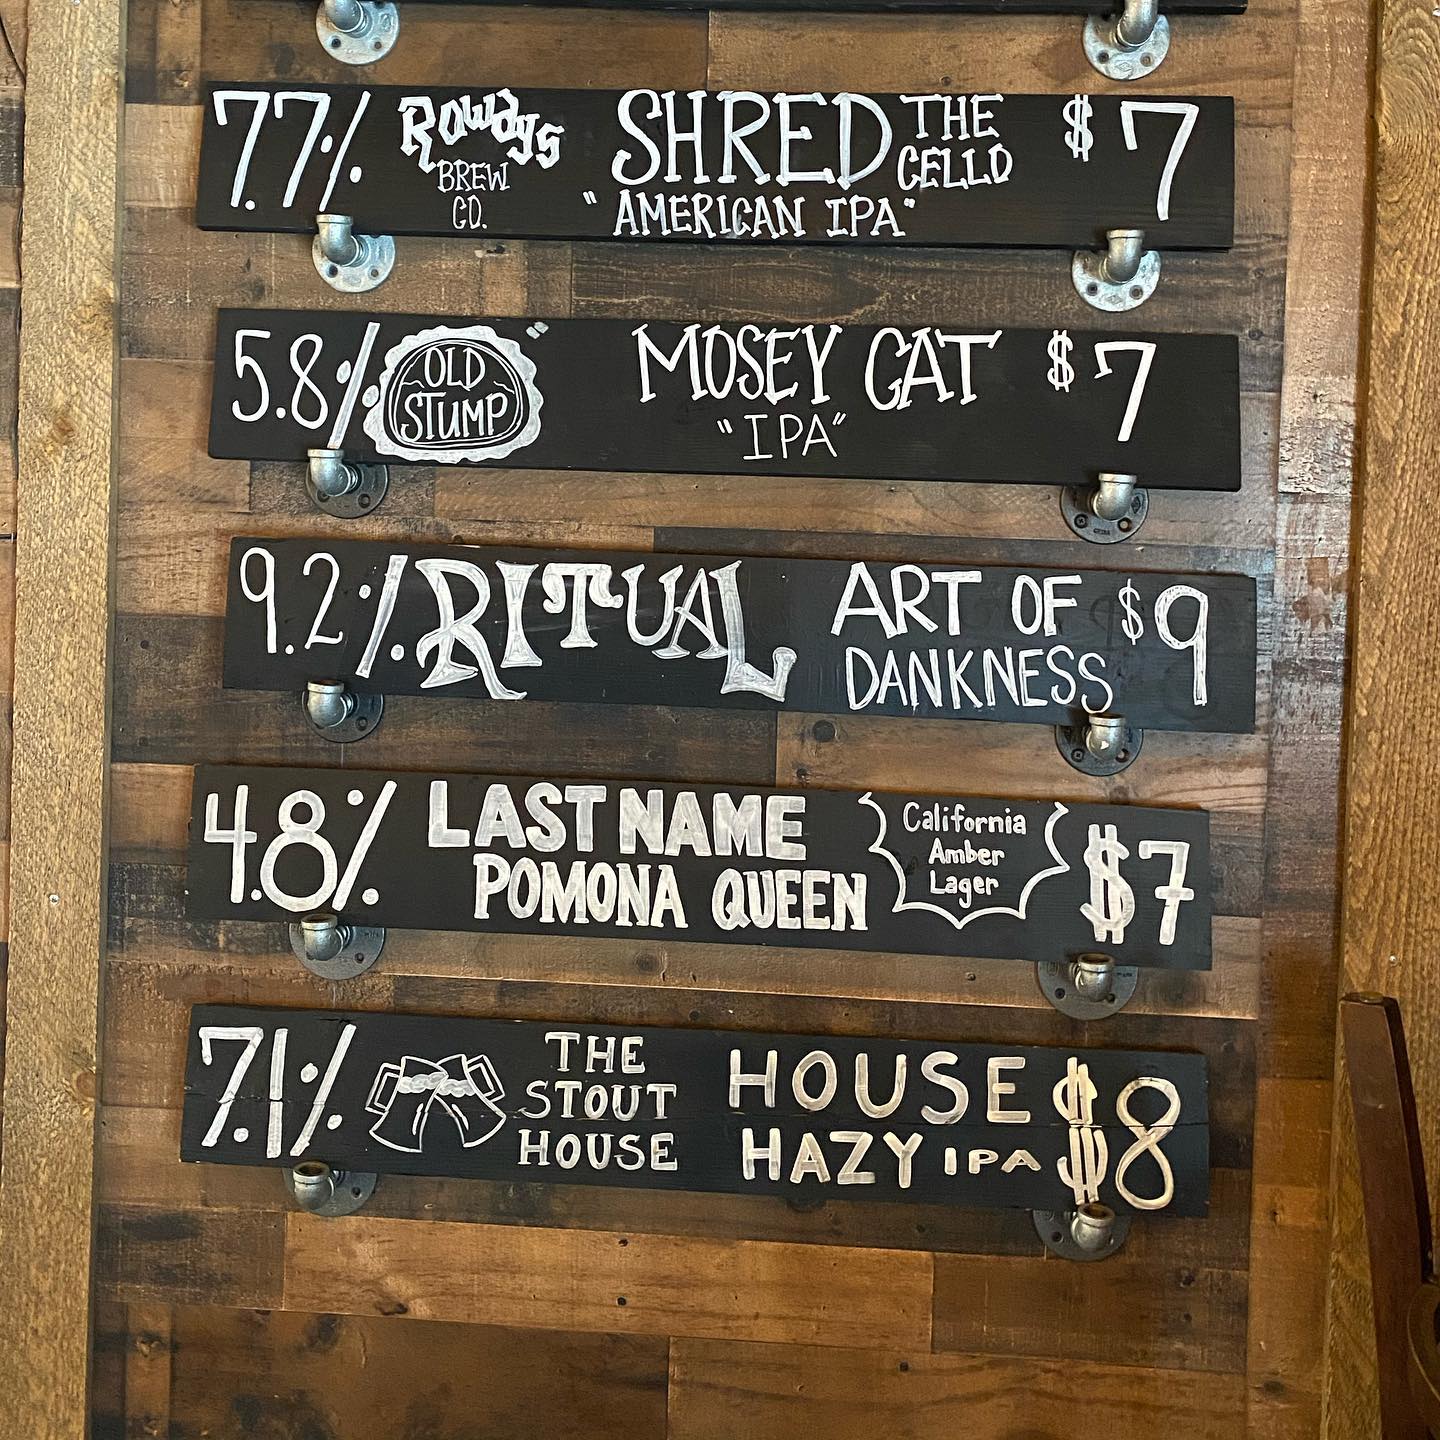 7.7% Rowdys SHRED THE $7
BREW CELLO
CO. "AMERICAN IPA"
5.8% OLD MOSEY CAT $7
STUMP "IPA"
9.2% RITUAL ART OF $9
DANKNESS
4.8% LAST NAME California $7
POMONA QUEEN Amber
Lager
7.1% THE HOUSE $8
STOUT HAZY IPA
HOUSE